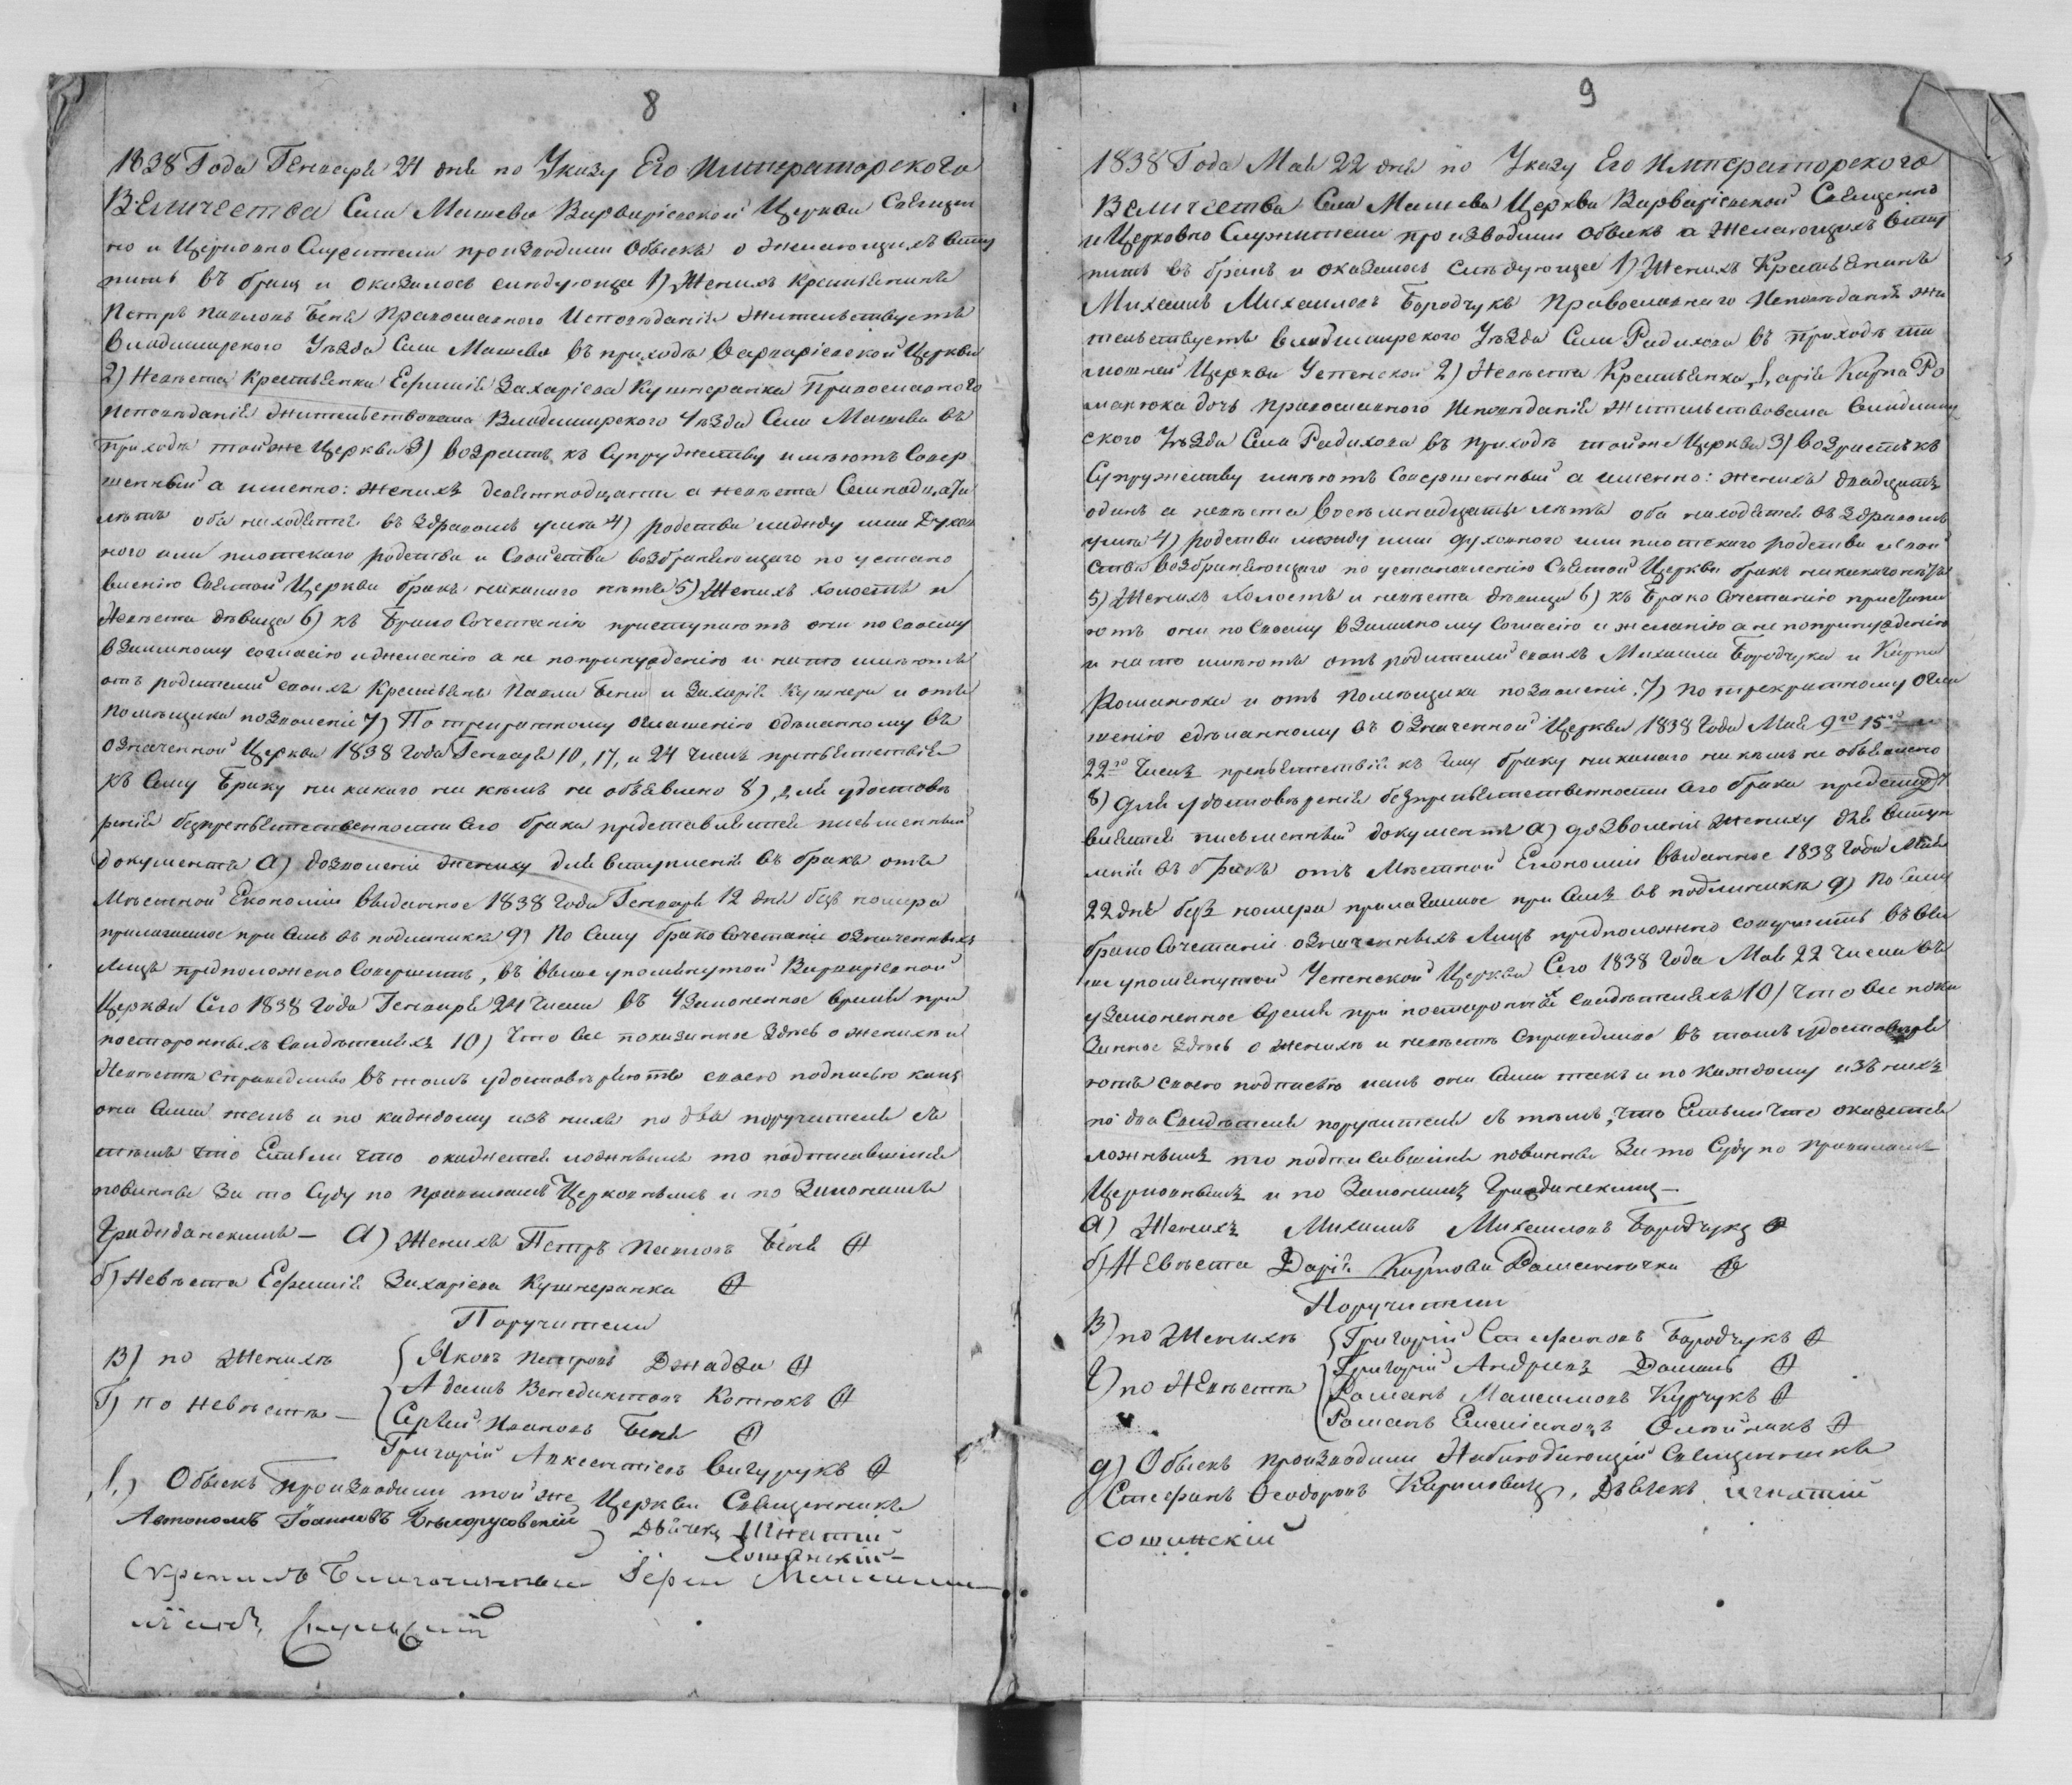 8
1838 Года Генваря 24 дня по Указу Его Императорского
Величества Села Машева Варваріевской Церкви Священ
но и Церковно Служители производили Обыскъ о желающихъ всту
пить въ бракъ и оказалось слѣдующее 1) Женихъ Крестьянинъ
Петръ Павловъ Беня Православного Исповѣданія жительствуетъ
Владимирского Уѣзда Села Машева въ приходѣ Варваріевской Церкви
2) Невѣста Крестьянка Ефимія Захаріева Кушнеранка Православного
исповѣданія жительствовала Владимирского Уѣзда Села Машева въ
приходѣ тойже Церкви 3) возрастъ къ Супружеству имѣютъ Совер
шенный а именно: женихъ девятнадцати а невѣста Семнадцати
лѣтъ оба находятся въ здравомъ умѣ 4) родства между ими Духов
ного или плотскаго родства и Свойства возбраняющаго по устано
вленію Святой Церкви бракъ никакого нѣтъ 5) Женихъ холостъ и
Невѣста дѣвица 6) къ Брако Сочетанію приступаютъ они по своему
взаимному согласію и желанію а не попринужденію и на то имѣютъ
отъ родителей своихъ Крестьянъ Павла Бени и Захарія Кушнера и отъ
помѣщика позволеніе 7) По трекратному оглашенію сдѣланному въ
означенной Церкви 1838 года Генваря 10, 17, и 24 числъ препятствія
къ Сему Браку никакого ни кѣмъ не объявлено 8) для удостовѣ
ренія безпрепятственности сего брака представляется письменный
документъ а) дозволеніе жениху для вступленія въ бракъ отъ
Мѣстной Економіи выданное 1838 года Генваря 12 дня безъ номера
прилагаемое при Семъ въ подлинникѣ 9) По Сему брако Сочетаніе означенныхъ
лицъ предположено Совершить, въ вышеупомянутой Варваріевской
Церкви Сего 1838 года Генваря 24 числа въ узаконенное время при
постороннихъ Свидѣтеляхъ 10) Что все показанное здѣсь о женихѣ и
Невѣстѣ справедливо въ томъ удостовѣряютъ своею подписью какъ
они Сами такъ и по каждому изъ нихъ по два поручителя съ
тѣмъ что Естьли что окажется ложнымъ то подписавшіеся
повинны за то Суду по правиламъ Церковнымъ и по Законамъ
Гражданскимъ — а) Женихъ Петръ Павловъ Беня
б) Невѣста Ефимія Захаріева Кушнеранка
Поручители
В) по Женихѣ Яковъ Петровъ Джадза
Адамъ Венедиктовъ Котюкъ
Г) по Невѣстѣ — Сергѣй Ивановъ Беня
Григорій Авксентіевъ Вигурукъ
Д) Обыскъ Производили той же Церкви Священникъ
Автономъ Іоанновъ Бѣлорусовскій Дьячекъ Игнатій
Сошинскій
Скрепилъ Благочинный Іерей
9
1838 Года Мая 22 дня по Указу Его Императорского
Величества Села Машева Церкви Варваріевской Священно
и Церковно Служители производили обыскъ о желающихъ всту
пить въ бракъ и оказалось слѣдующее 1) Женихъ Крестьянинъ
Михаилъ Михаиловъ Бородчукъ Православнаго Исповѣданія жи
тельствуетъ Владимирского Уѣзда Села Радихова въ приходѣ та
мошней Церкви Успенской 2) Невѣста Крестьянка Дарія Карпа Ро
манюка дочь православного Исповѣданія жительствовала Владимир
ского Уѣзда Села Радихова въ приходѣ тойже Церкви 3) возрастъ къ
Супружеству имѣютъ Совершенный а именно: женихъ двадцать
одинъ а невѣста восемнадцать лѣтъ оба находятся въ здравомъ
умѣ 4) родства между ими духовного или плотскаго родства и свой
ства возбраняющаго по установленію Святой Церкви бракъ никакого нѣтъ
5) Женихъ холостъ и невѣста дѣвица 6) къ Брако Сочетанію приступа
ютъ они по своему взаимному согласію и желанію а не попринужденію
и на то имѣютъ отъ родителей своихъ Михаила Бородчука и Карпа
Романюка и отъ помѣщика позволеніе. 7) по трекратному огла
шенію сдѣланному въ означенной Церкви 1838 года Мая 9го 15го и
22го числъ препятствія къ сему браку никакого ни кѣмъ не объявлено
8) для удостовѣренія безпрепятственности сего брака предста
вляется письменный документъ а) дозволеніе жениху для вступ
ленія въ бракъ отъ Мѣстной Економіи выданное 1838 года Мая
22 дня безъ номера прилагаемое при Семъ въ подлинникѣ 9) По Сему
брако Сочетаніе означенныхъ лицъ предположено совершить въ вы
ше упомянутой Успенской Церкви Сего 1838 года Мая 22 числа въ
узаконенное время при постороннихъ свидѣтеляхъ 10) Что все пока
занное здѣсь о женихѣ и невѣстѣ справедливо въ томъ удостовѣря
ютъ своею подписью какъ они Сами такъ и по каждому изъ нихъ
по два Свидѣтеля поручителя съ тѣмъ, что Естьли что окажется
ложнымъ то подписавшіеся повинны за то Суду по правиламъ
Церковнымъ и по Законамъ Гражданскимъ —
а) Женихъ Михаилъ Михаиловъ Бородчукъ
б) Невѣста Дарія Карпова Романючка
Поручители
В) по Женихѣ Григорій Стефановъ Бородчукъ
Григорій Андреевъ
Г) по Невѣстѣ Романъ Максимовъ Курчукъ
Романъ Емеліановъ Олейникъ
д) Обыскъ производили Наблюдающій Священникъ
Стефанъ Феодоровъ Карповичъ, Дьячекъ Игнатій
Сошинскій